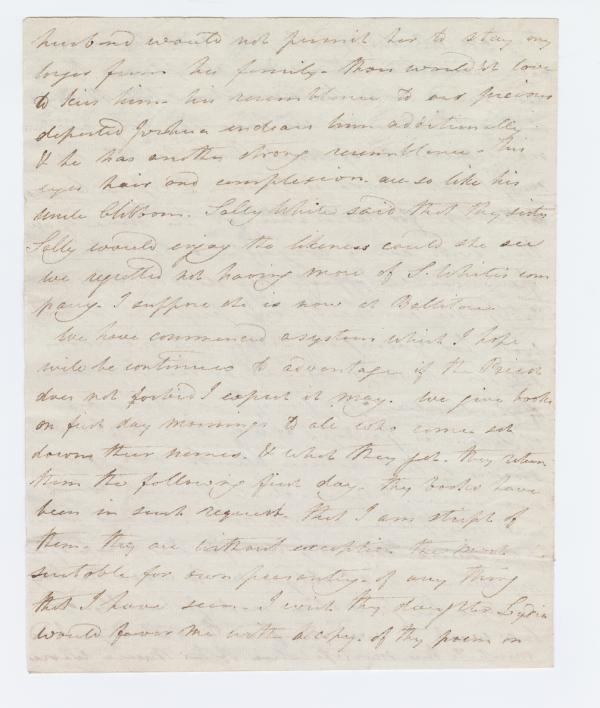 husband would not permit her to stay any
longer from his family. thou would'st love
to kiss him. his resemblance to our precious
departed Joshua endears him additionally
& he has another strong resemblance. his
eyes hair and complexion are so like his
uncle Sally White said that thy sister
Sally would enjoy the likeness could she see
we regretted not having more of S. White's com
pany. I suppose she is now at Ballitore
We have commenced a system which I hope
will be continued to advantage if the Priest
does not forbid I expect it may. We give books
on first day mornings to all who come set
down their names. & what they get. they return
them the following first day. thy books have
been in such request that I am stript of
them. they are without exception the most
suitable for our peasantry of any thing
that I have seen. I wish thy daughter Lydia
would favor me with a copy of thy poem on